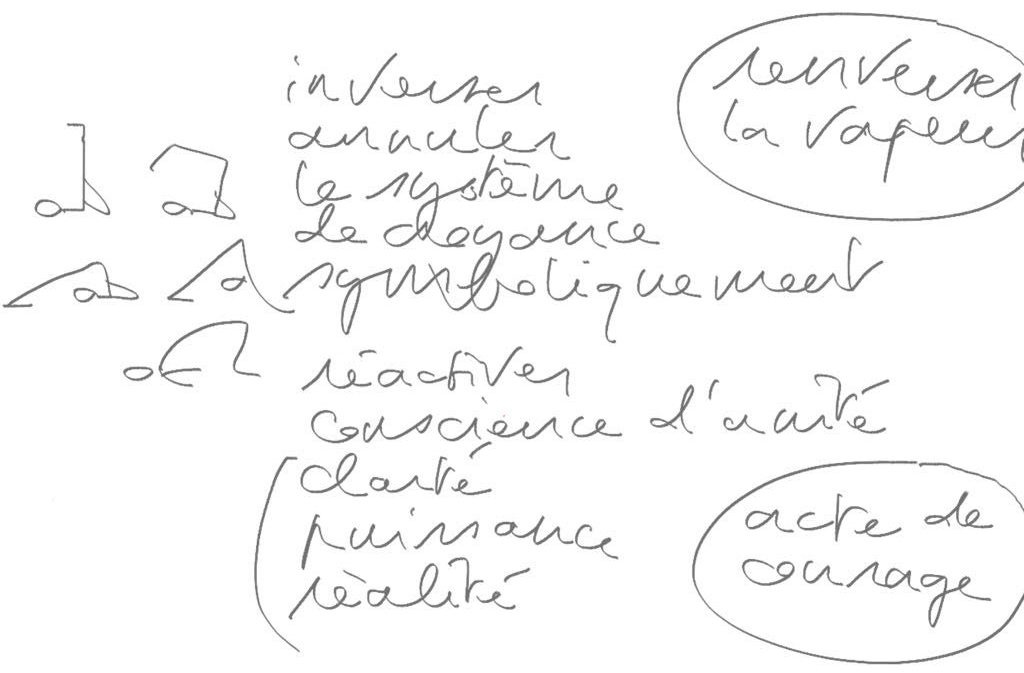 inverser
annuler
le système
de croyance
symboliquement
réactiver
conscience d'unité
clarté
puissance
réalité
renverser
la vapeur
acte de
courage